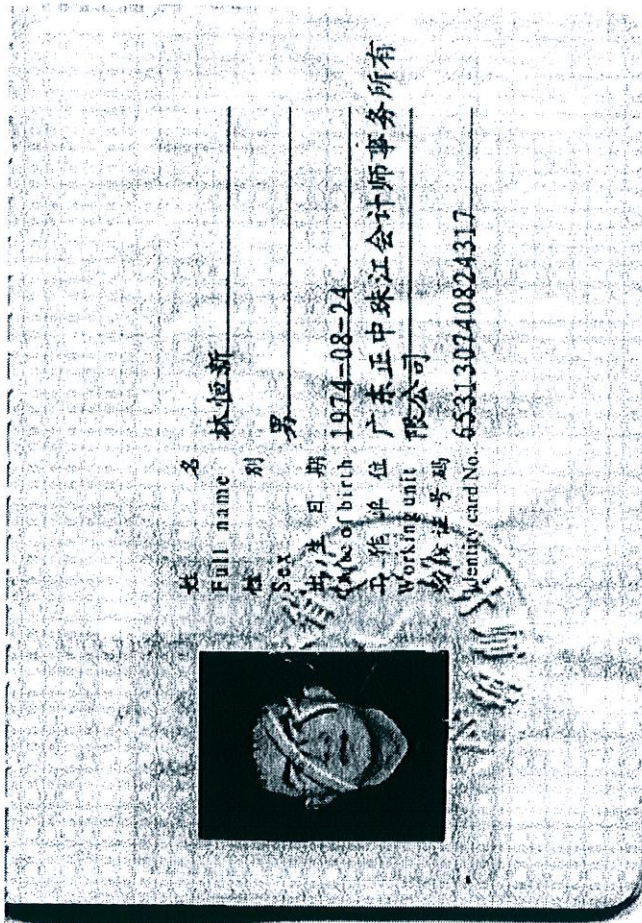 姓 名 林恒新
Full name
性 别 男
Sex
出生日期 1974-08-24
Date of birth
工作单位 广东正中珠江会计师事务所有
Working unit 限公司
身份证号码 653130740824317
Identity card No.